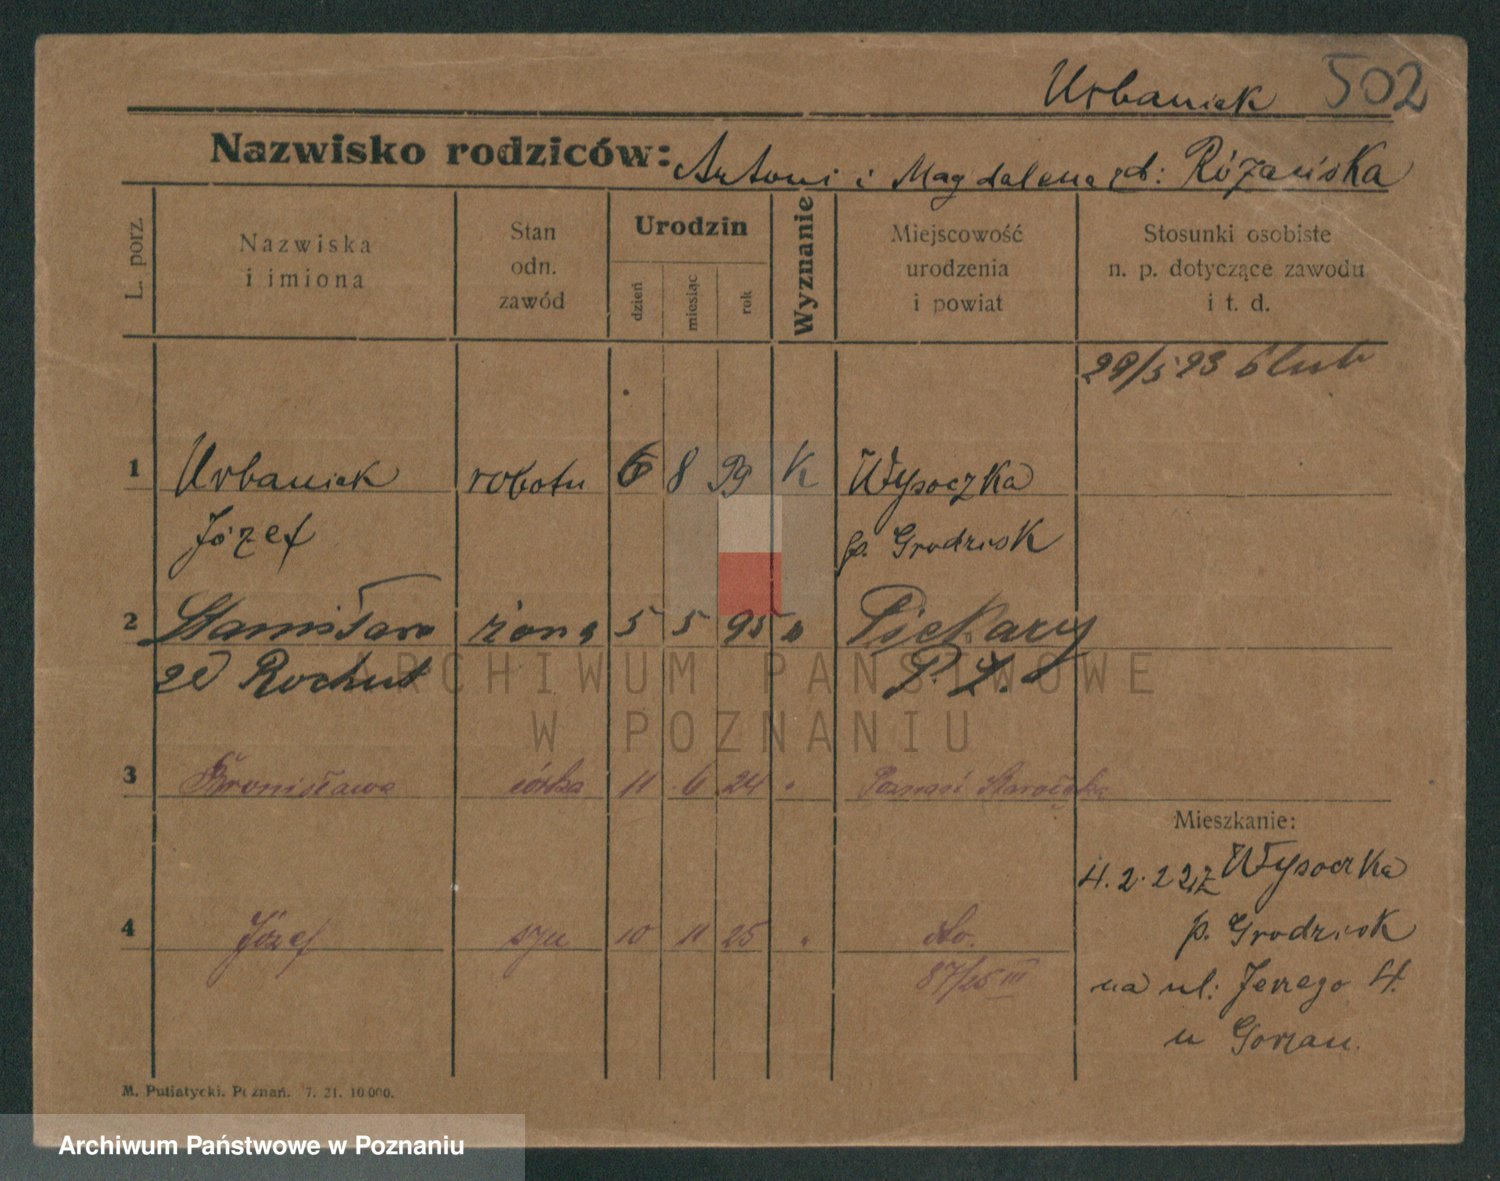 Urbaniak 502
Nazwisko rodziców: Antoni i Magdalena zd: Różańska
L. porz.
Nazwiska i imiona
Stan odn. zawód
Urodzin
dzień miesiąc rok
Wyznanie
Miejscowość urodzenia i powiat
Stosunki osobiste n. p. dotyczące zawodu i t. d.
29/5 23 ślub
1 Urbaniak robotn 6 8 99 K Wysoczka
Józef p. Grodzisk
2 Stanisława żona 5 5 95 " Piekary
zd Rochut P. Z.
3 Bronisława córka 11 6 24 " Poznań Starołęka
Mieszkanie:
4.2.22 z Wysoczka
4 Józef syn 10 11 25 " do.
p. Grodzisk
87/25 III
na ul: Jerzego 4.
u Gorzan.
M. Putiatycki. Poznań. 7. 21. 10.000.
ARCHIWUM PAŃSTWOWE
W POZNANIU
Archiwum Państwowe w Poznaniu